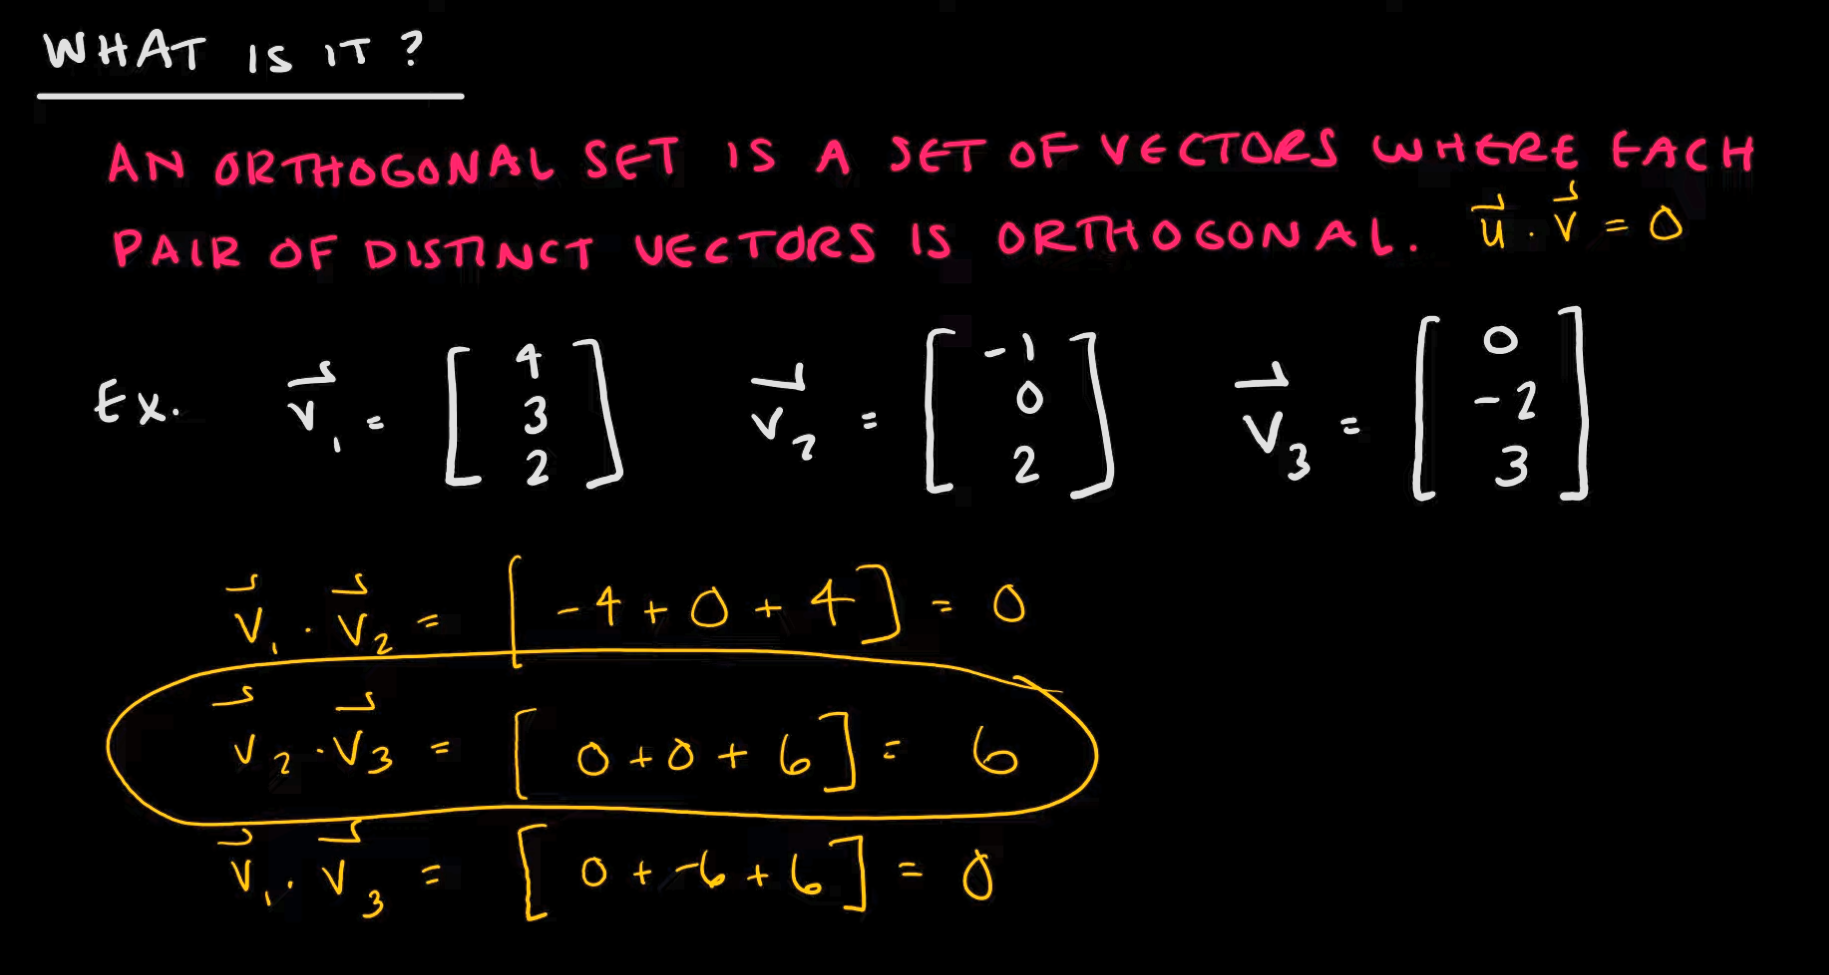 WHAT IS IT?
AN ORTHOGONAL SET IS A SET OF VECTORS WHERE EACH
PAIR OF DISTINCT VECTORS IS ORTHOGONAL. u⃗ · v⃗ = 0
Ex. v⃗₁ = [4 3 2] v⃗₂ = [-1 0 2] v⃗₃ = [0 -2 3]
v⃗₁ · v⃗₂ = [-4 + 0 + 4] = 0
v⃗₂ · v⃗₃ = [0 + 0 + 6] = 6
v⃗₁ · v⃗₃ = [0 + -6 + 6] = 0